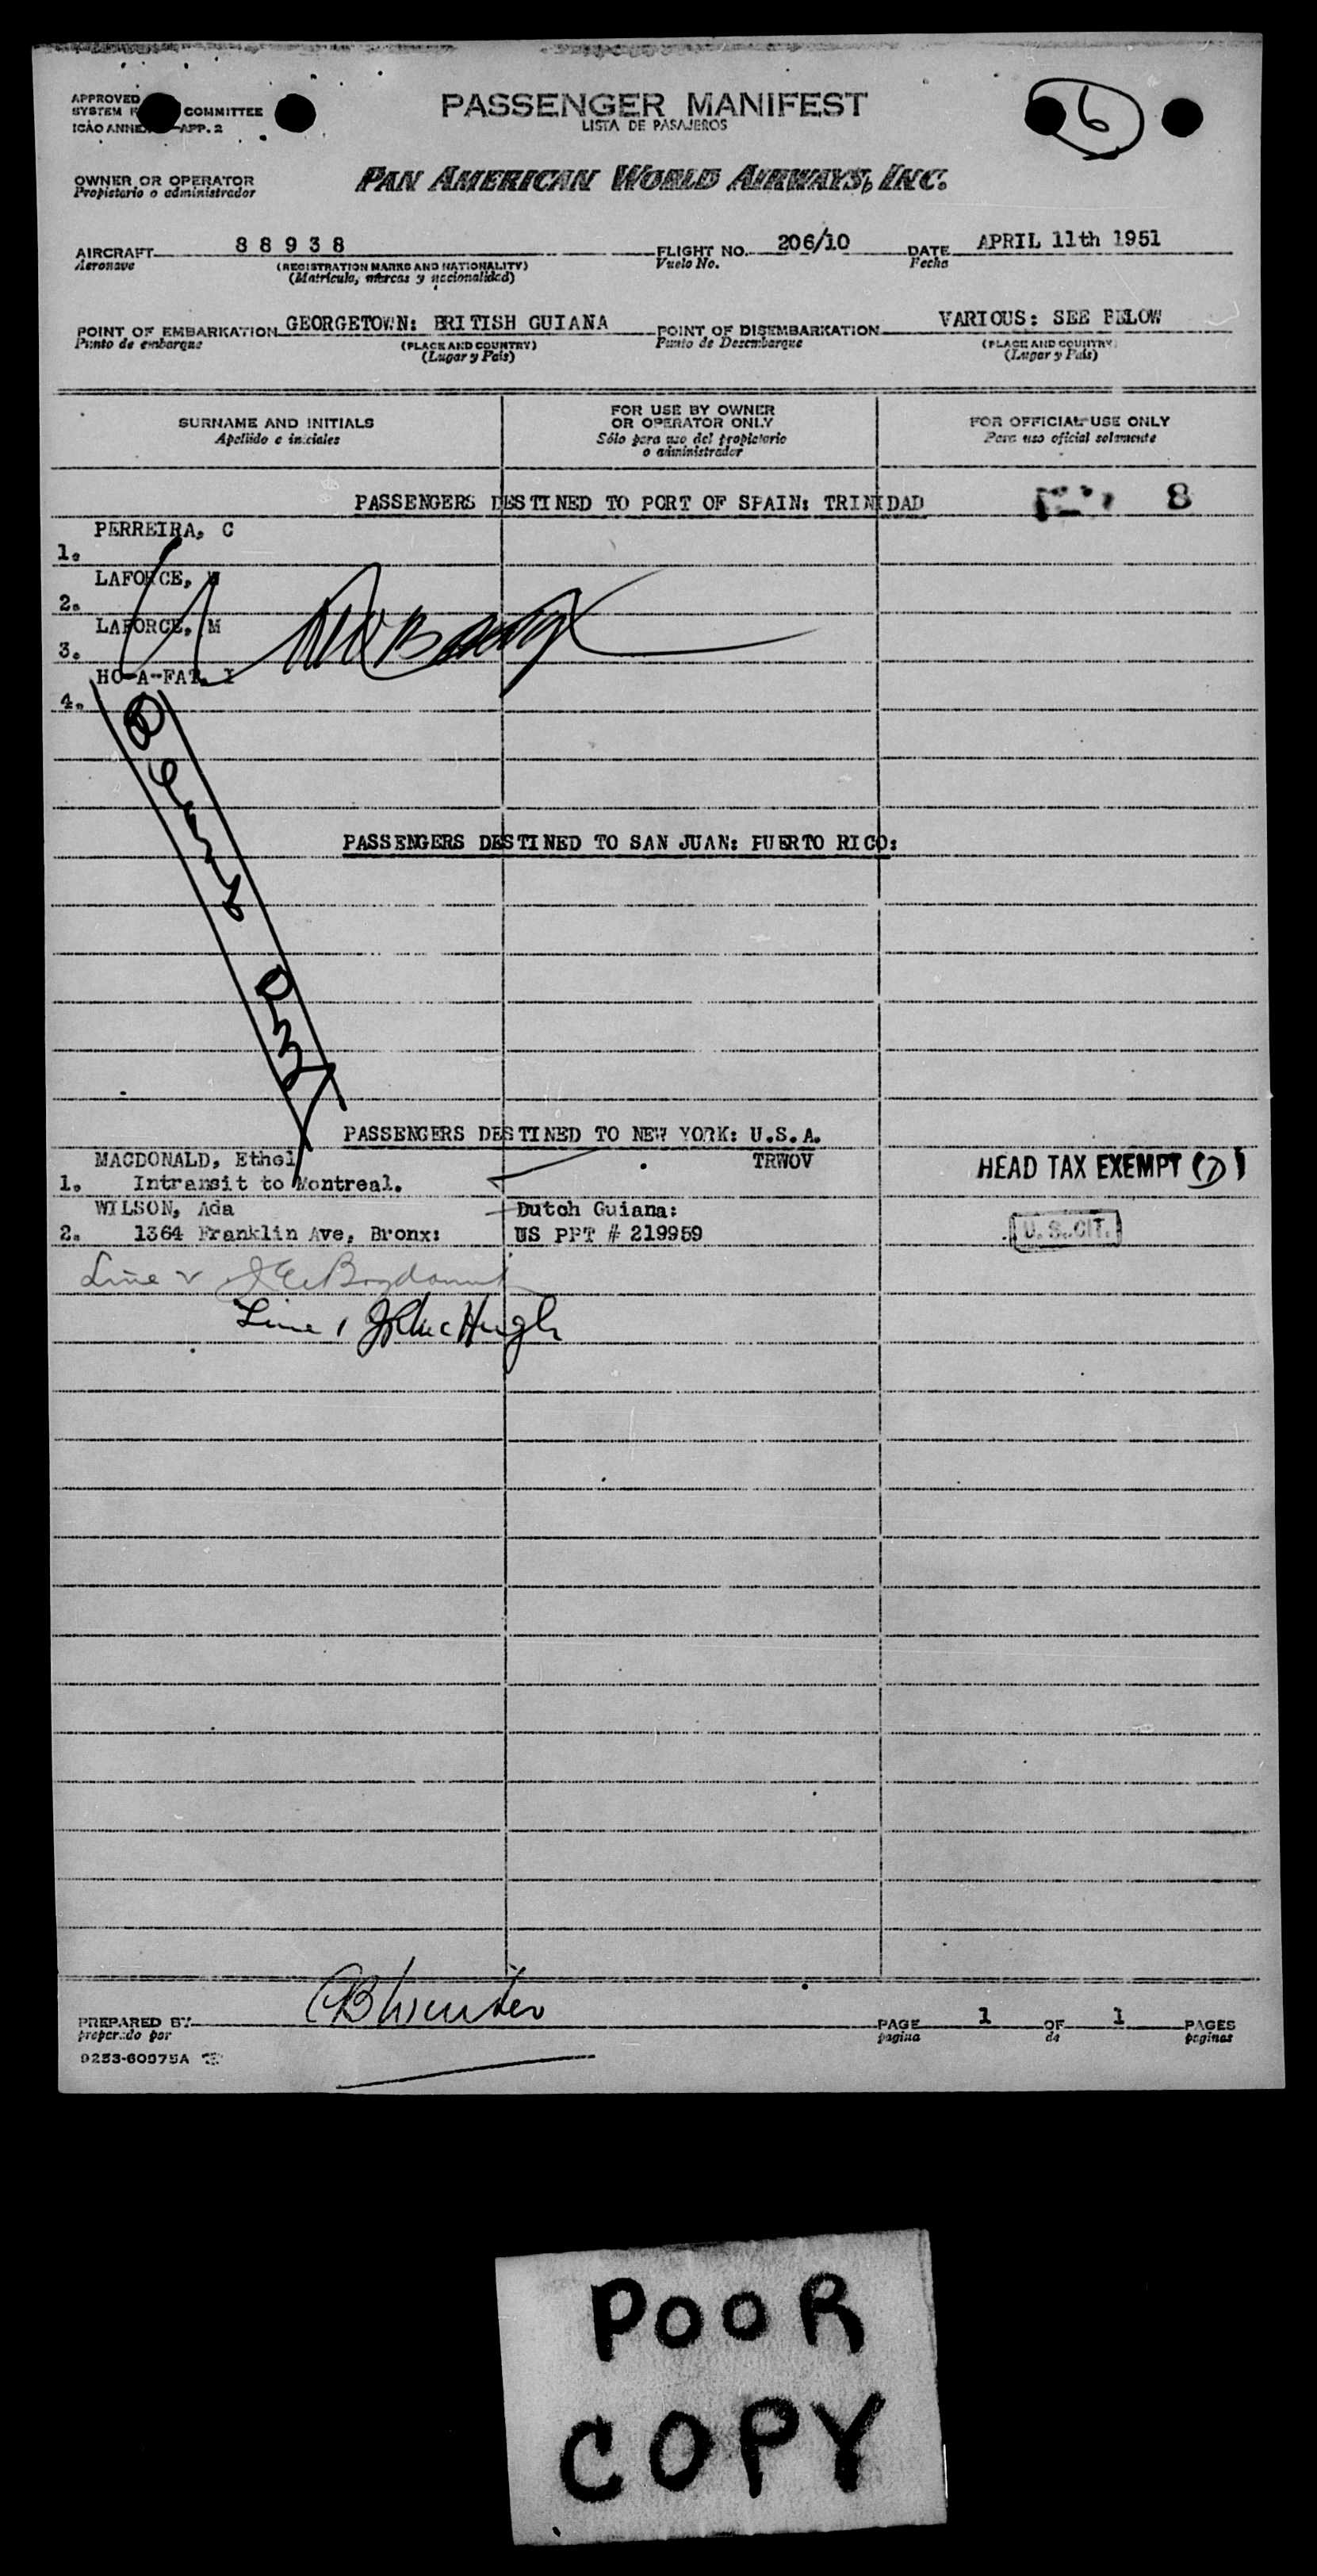 APPROVED
SYSTEM COMMITTEE
ICAO ANNEX APP. 2
PASSENGER MANIFEST
LISTA DE PASAJEROS
6
OWNER OR OPERATOR
Propietario o administrador
PAN AMERICAN WORLD AIRWAYS, INC.
AIRCRAFT 88938 FLIGHT NO. 206/10 DATE APRIL 11th 1951
Aeronave (REGISTRATION MARKS AND NATIONALITY) Vuelo No. Fecha
(Matricula, marcas y nacionalidad)
POINT OF EMBARKATION GEORGETOWN: BRITISH GUIANA POINT OF DISEMBARKATION VARIOUS: SEE BELOW
Punto de embarque (PLACE AND COUNTRY) Punto de Desembarque (PLACE AND COUNTRY)
(Lugar y País) (Lugar y País)
SURNAME AND INITIALS
Apellido e iniciales
FOR USE BY OWNER
OR OPERATOR ONLY
Sólo para uso del propietario
o administrador
FOR OFFICIAL USE ONLY
Para uso oficial solamente
PASSENGERS DESTINED TO PORT OF SPAIN: TRINIDAD 8
PERREIRA, C
1.
LAFORCE, W
2.
LAFORCE, M
3.
HO-A-FAT, I
4.
PASSENGERS DESTINED TO SAN JUAN: PUERTO RICO:
PASSENGERS DESTINED TO NEW YORK: U.S.A.
MACDONALD, Ethel TRWOV
1. Intransit to Montreal. HEAD TAX EXEMPT (7)
WILSON, Ada Dutch Guiana:
2. 1364 Franklin Ave, Bronx: US PPT # 219959 U.S. CIT.
Line 2
Line 1 J R McHugh
PREPARED BY PAGE 1 OF 1 PAGES
preparado por pagina de paginas
0253-60075A
POOR
COPY